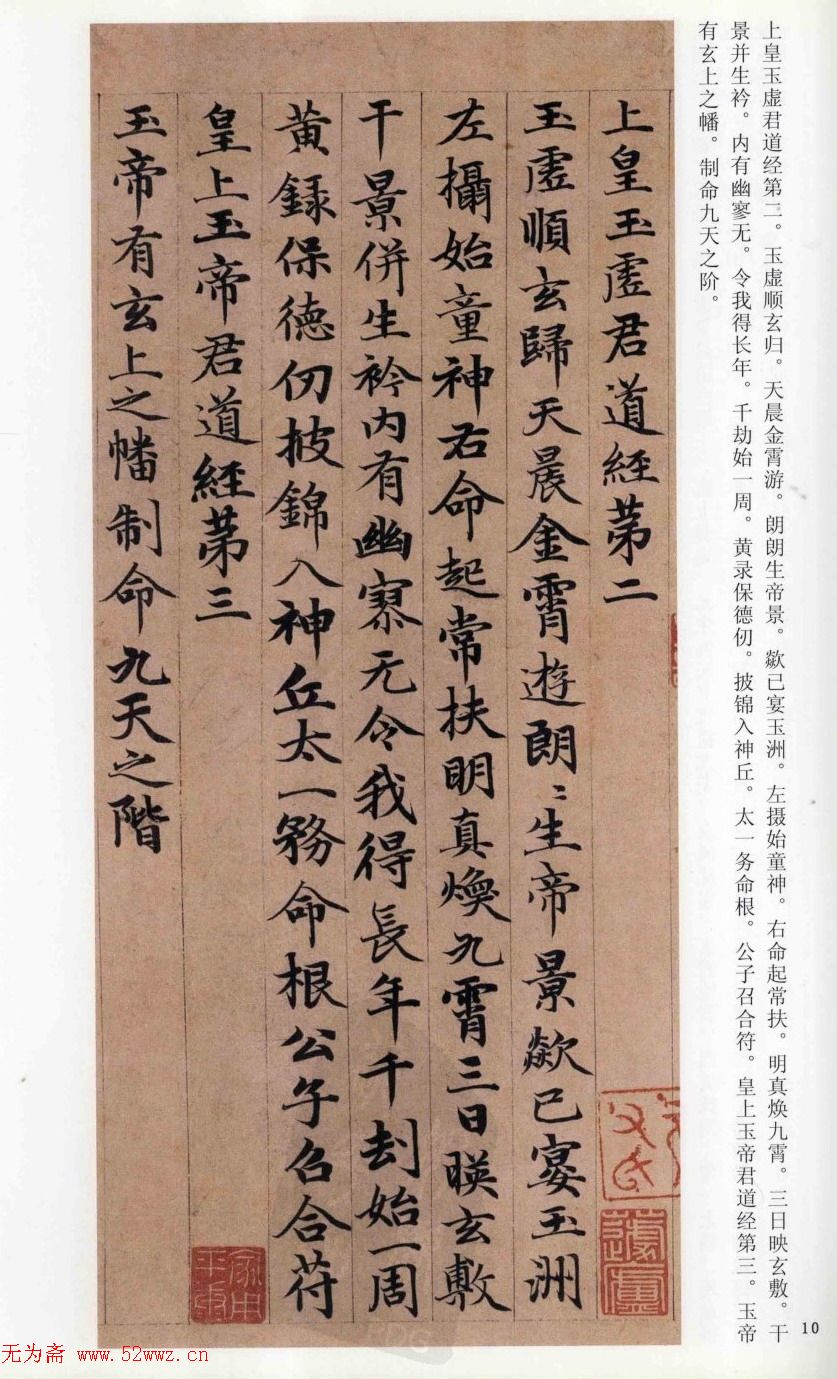 上皇玉虚君道经第二。玉虚顺玄归。天晨金霄游。朗朗生帝景。歘已宴玉洲。左摄始童神。右命起常扶。明真焕九霄。三日映玄敷。干
景并生衿。内有幽寥无。令我得长年。千劫始一周。黄录保德仞。披锦入神丘。太一务命根。公子召合符。皇上玉帝君道经第三。玉帝
有玄上之幡。制命九天之阶。
上皇玉虛君道經苐二
玉虛順玄歸天晨金霄遊朗〻生帝景歘已宴玉洲
左攝始童神右命起常扶明真煥九霄三日暎玄敷
干景併生衿内有幽寥无令我得長年千刦始一周
黃録保德仞披錦入神丘太一務命根公子召合苻
皇上玉帝君道經苐三
玉帝有玄上之幡制命九天之階
10
无为斋 www.52wwz.cn